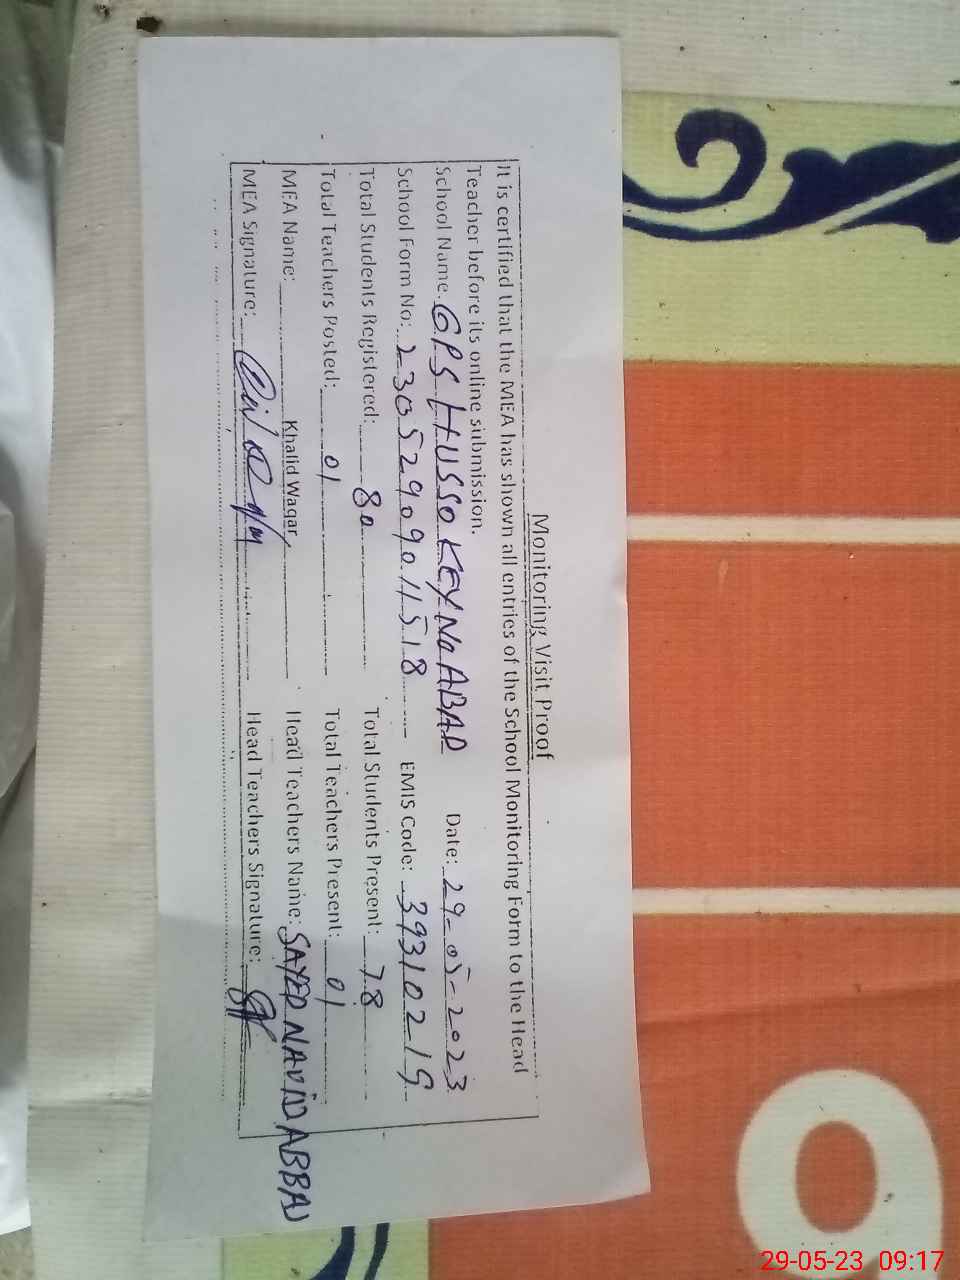 Monitoring Visit Proof
It is certified that the MEA has shown all entries of the School Monitoring Form to the Head
Teacher before its online submission.
School Name: GPS HUSSO KEYNO ABAD Date: 29-05-2023
School Form No: 23052909011518 EMIS Code: 39310219
Total Students Registered: 80 Total Students Present: 78
Total Teachers Posted: 01 Total Teachers Present: 01
MEA Name: Khalid Waqar Head Teachers Name: SAYED NAVID ABBAS
MEA Signature: Head Teachers Signature:
29-05-23 09:17